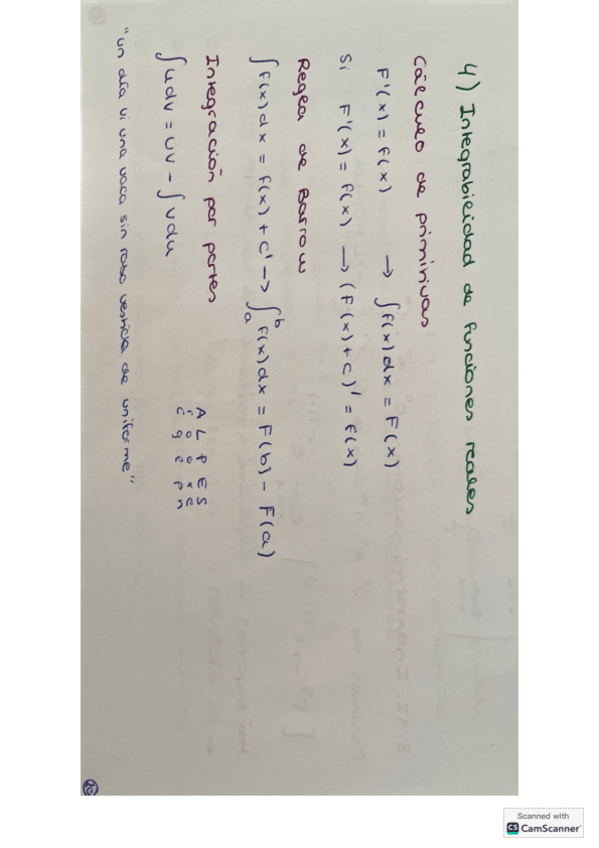 4) Integrabilidad de funciones reales
Cálculo de primitivas
F'(x) = f(x) → ∫f(x)dx = F(x)
Si F'(x) = f(x) → (F(x)+c)' = f(x)
Regla de Barrow
∫f(x)dx = f(x) + C' → ∫ₐᵇ f(x)dx = F(b) - F(a)
Integración por partes
∫udv = uv - ∫vdu
A L P E S
r o o x e
c g e p n
"un día vi una vaca sin rabo vestida de uniforme"
Scanned with
CS CamScanner